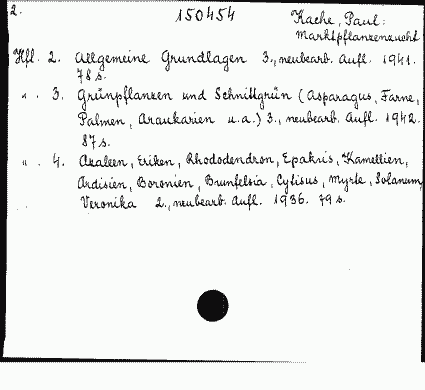 2.
150454
Kache, Paul:
Marktpflanzenzucht
Hfl. 2. Allgemeine Grundlagen 3., neubearb. Aufl. 1941.
78 s.
" . 3. Grünpflanzen und Schnittgrün (Asparagus, Farne,
Palmen, Araukarien u.a.) 3., neubearb. Aufl. 1942.
87 s.
" . 4. Azaleen, Eriken, Rhododendron, Epakris, Kamellien,
Ardisien, Boronien, Brunfelsia, Cytisus, Myrte, Solanum,
Veronika 2., neubearb. Aufl. 1936. 79 s.